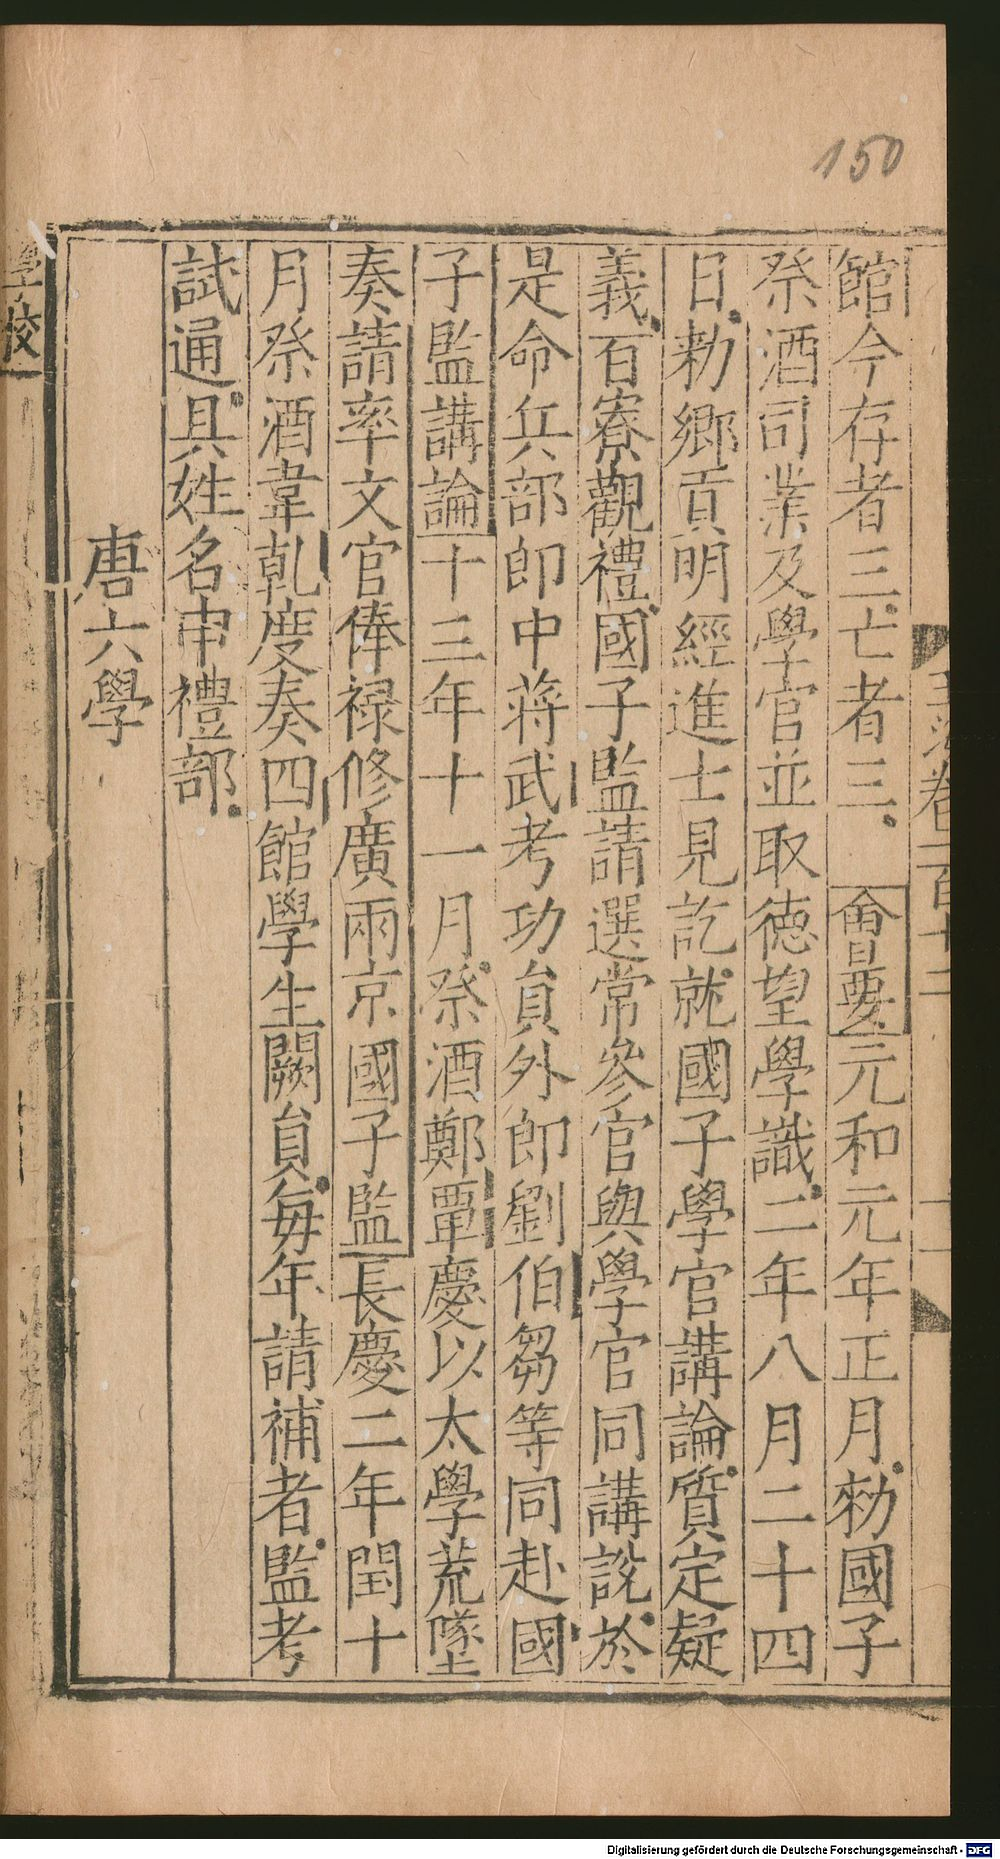 150
玉海卷一百十二
館今存者三亡者三 會要元和元年正月勑國子
祭酒司業及學官並取德望學識二年八月二十四
日勑鄉貢明經進士見訖就國子學官講論質定疑
義百寮觀禮國子監請選常參官與學官同講說於
是命兵部郎中蔣武考功員外郎劉伯芻等同赴國
子監講論十三年十一月祭酒鄭覃慶以太學荒墜
奏請率文官俸祿修廣兩京國子監長慶二年閏十
月祭酒韋乾度奏四館學生闕員每年請補者監考
試通具姓名申禮部
唐六學
學校
Digitalisierung gefördert durch die Deutsche Forschungsgemeinschaft - DFG